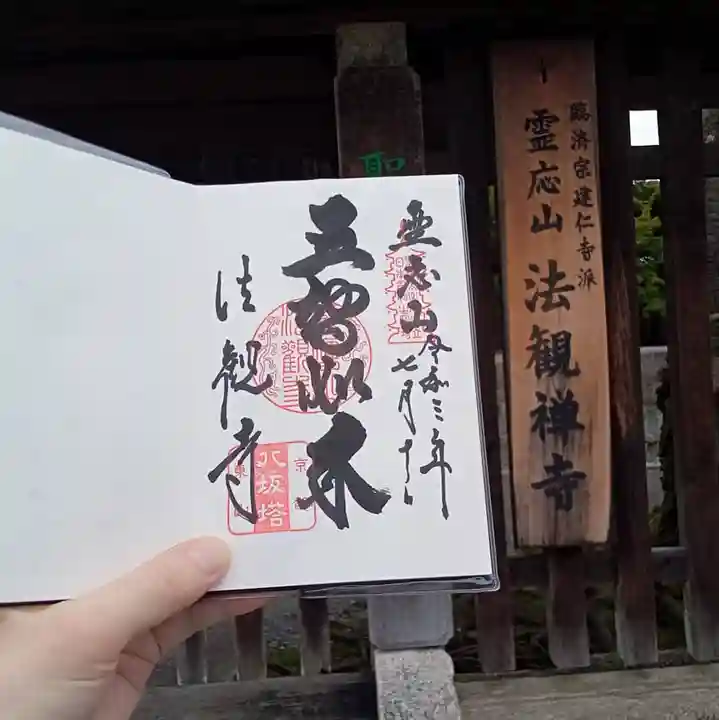 臨済宗建仁寺派
霊応山 法観禅寺
聖
霊応山
令和三年
七月十
五智如来
法観寺
八坂塔
京
東